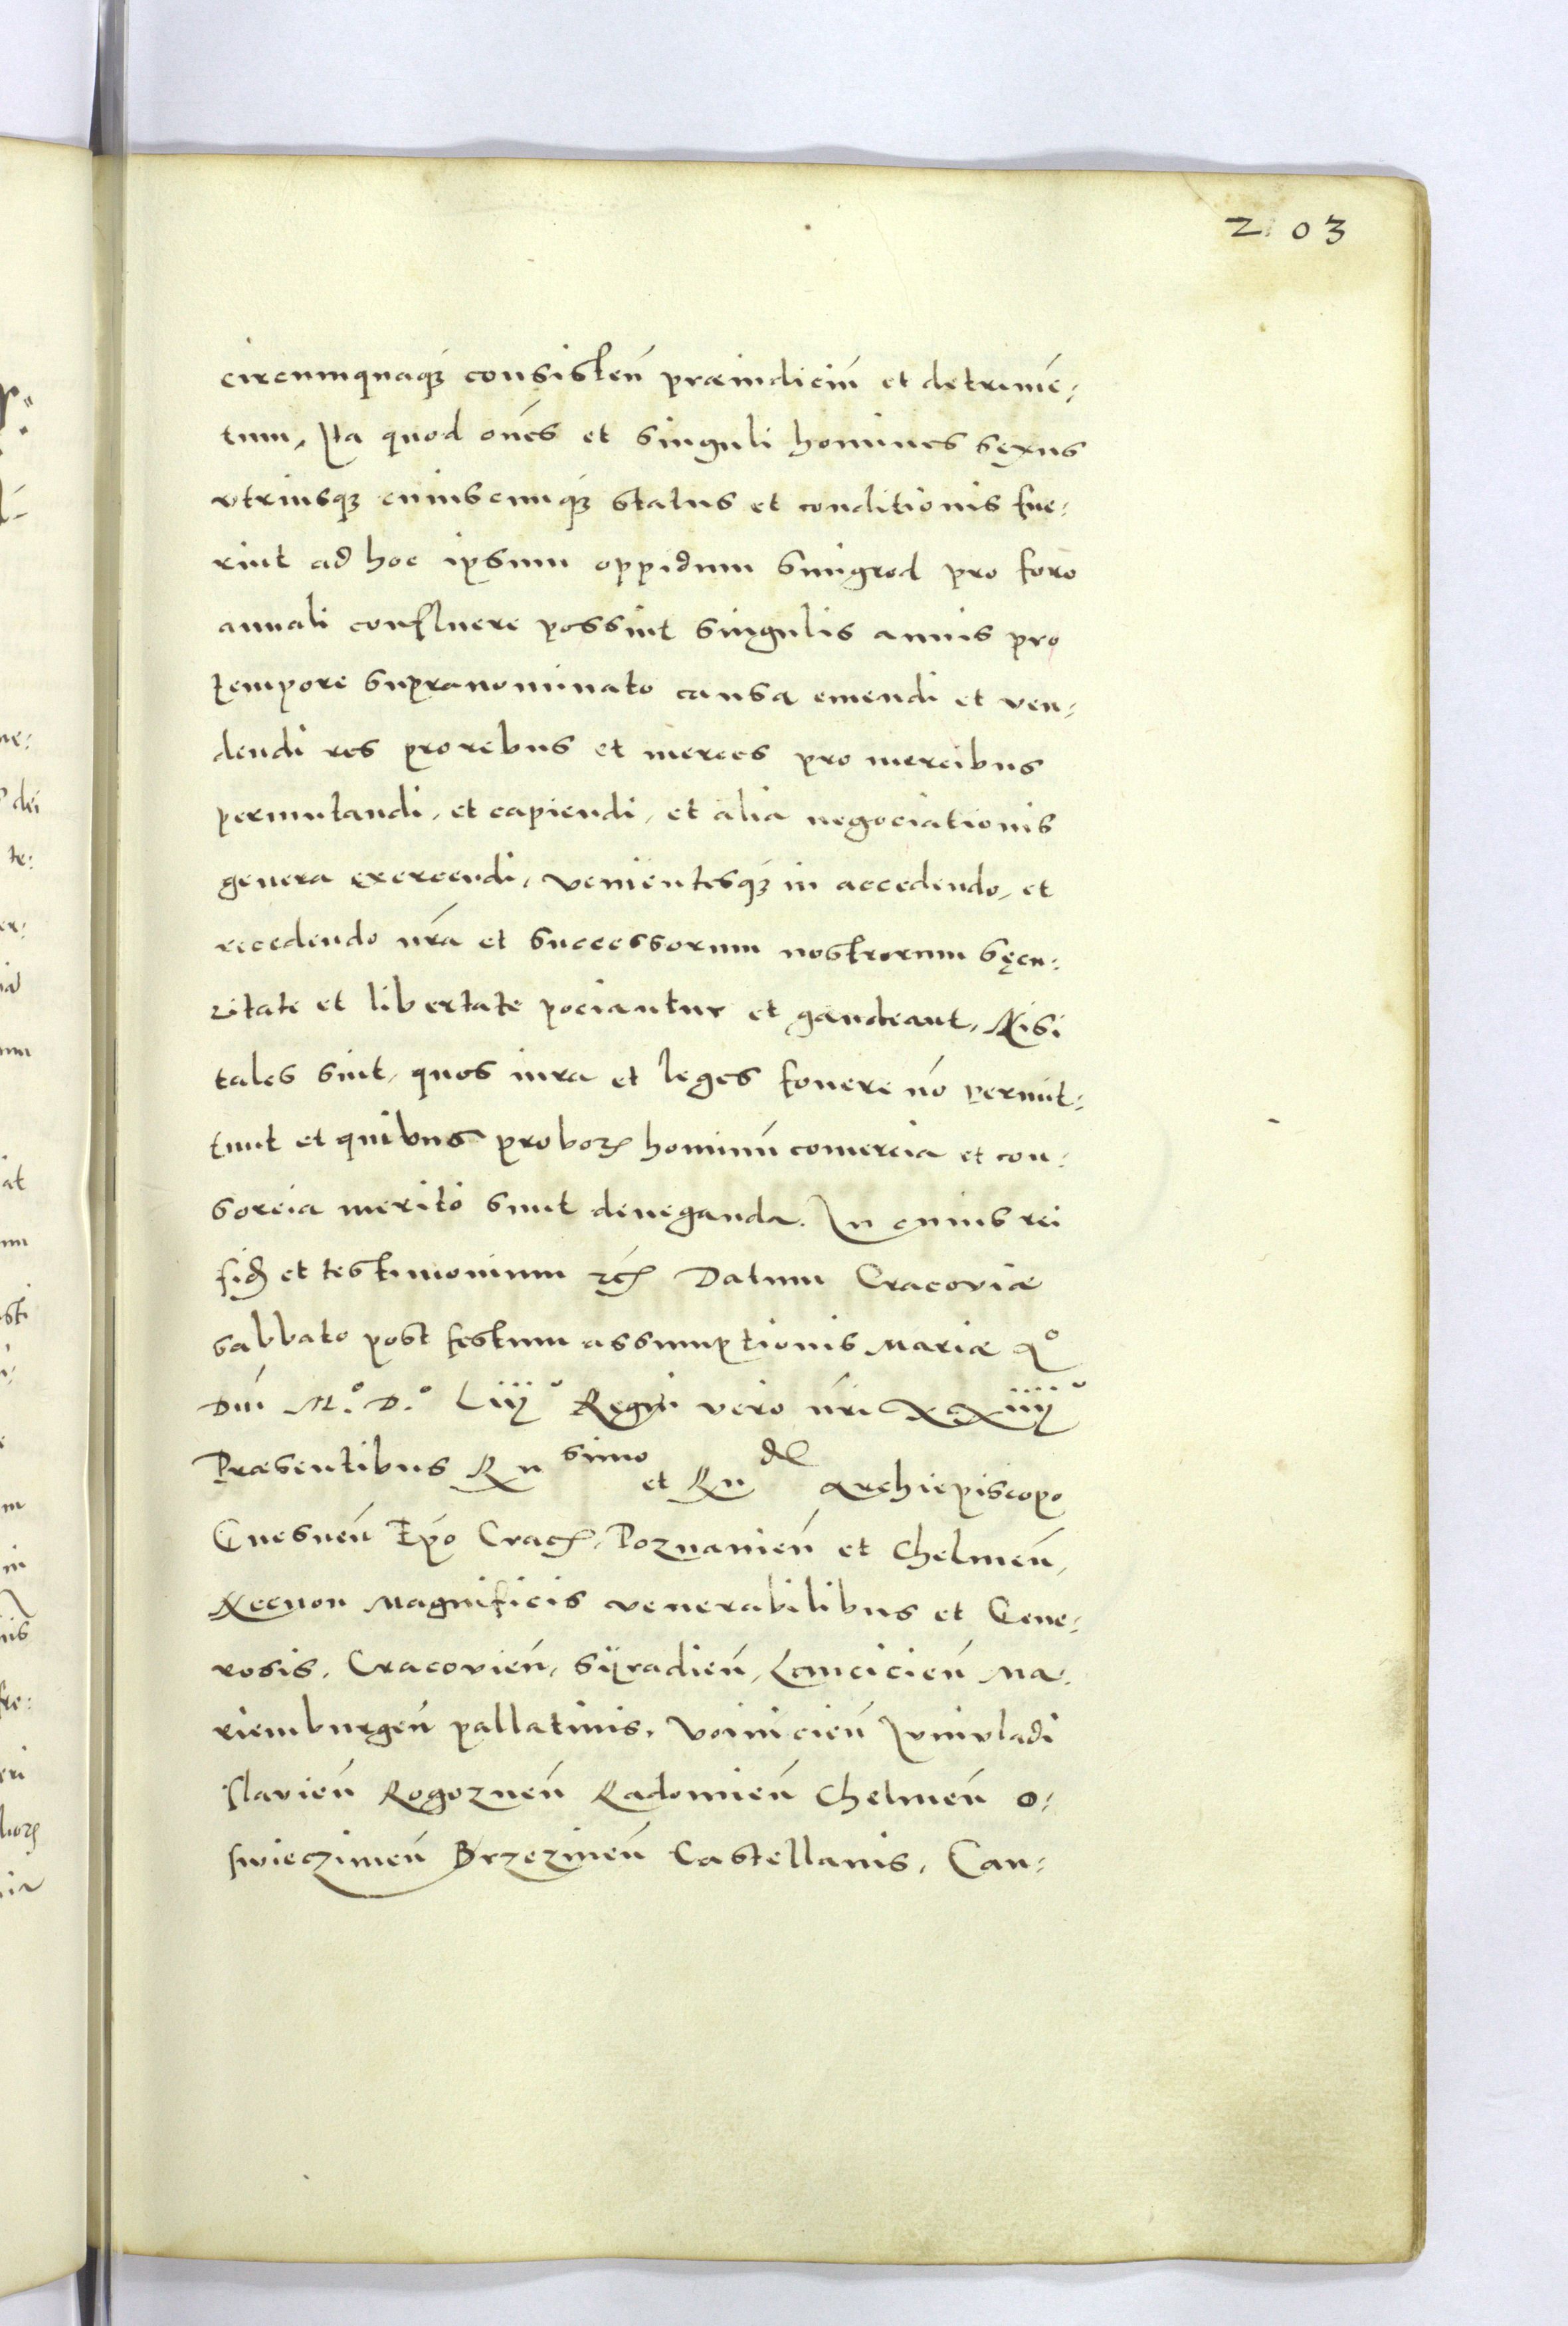 2103
circumquaq₃ consisteñ præiudiciū et detrimē:
tum, Ita quod oēs et singuli homines sęxus
vtriusq₃ cuiuscunq₃ status et conditionis fue:
rint ad hoc ipsum oppidum Smigrod pro foro
annali confluere possint singulis annis pro
tempore supranominato causa emendi et ven:
dendi res pro rebus et merces pro mercibus
permutandi, et capiendi, et alia negociationis
genera exercendi, venientesq₃ in accedendo, et
recedendo nr̄a et successorum nostrorum sęcu:
ritate et libertate pociantur et gaudeant, Nisi
tales sint, quos iura et leges fouere nō permit:
tunt et quibus proboꝝ hominū comercia et con:
sorcia merito sunt deneganda. In cuius rei
fid̄ et testimonium ꝛc̄ Datum Cracoviæ
sabbato post festum assumptionis Mariæ Aº
Dni Mº. Dº. Liijº Regni vero nr̄i XXiiijº
Præsentibus Rn simo et Rn dis Archiepiscopo
Gnesneñ Ep̄o Crac̄, Poznanieñ et Chelmeñ,
Necnon Magnificis venerabilibus et Gene:
rosis, Cracovieñ, Sÿradieñ, Lancicieñ Ma:
riemburgeñ pallatinis, Voinicieñ Iuniuladi
slavieñ Rogozneñ Radomieñ Chelmeñ O:
swieczimeñ Brzezineñ Castellanis, Can: